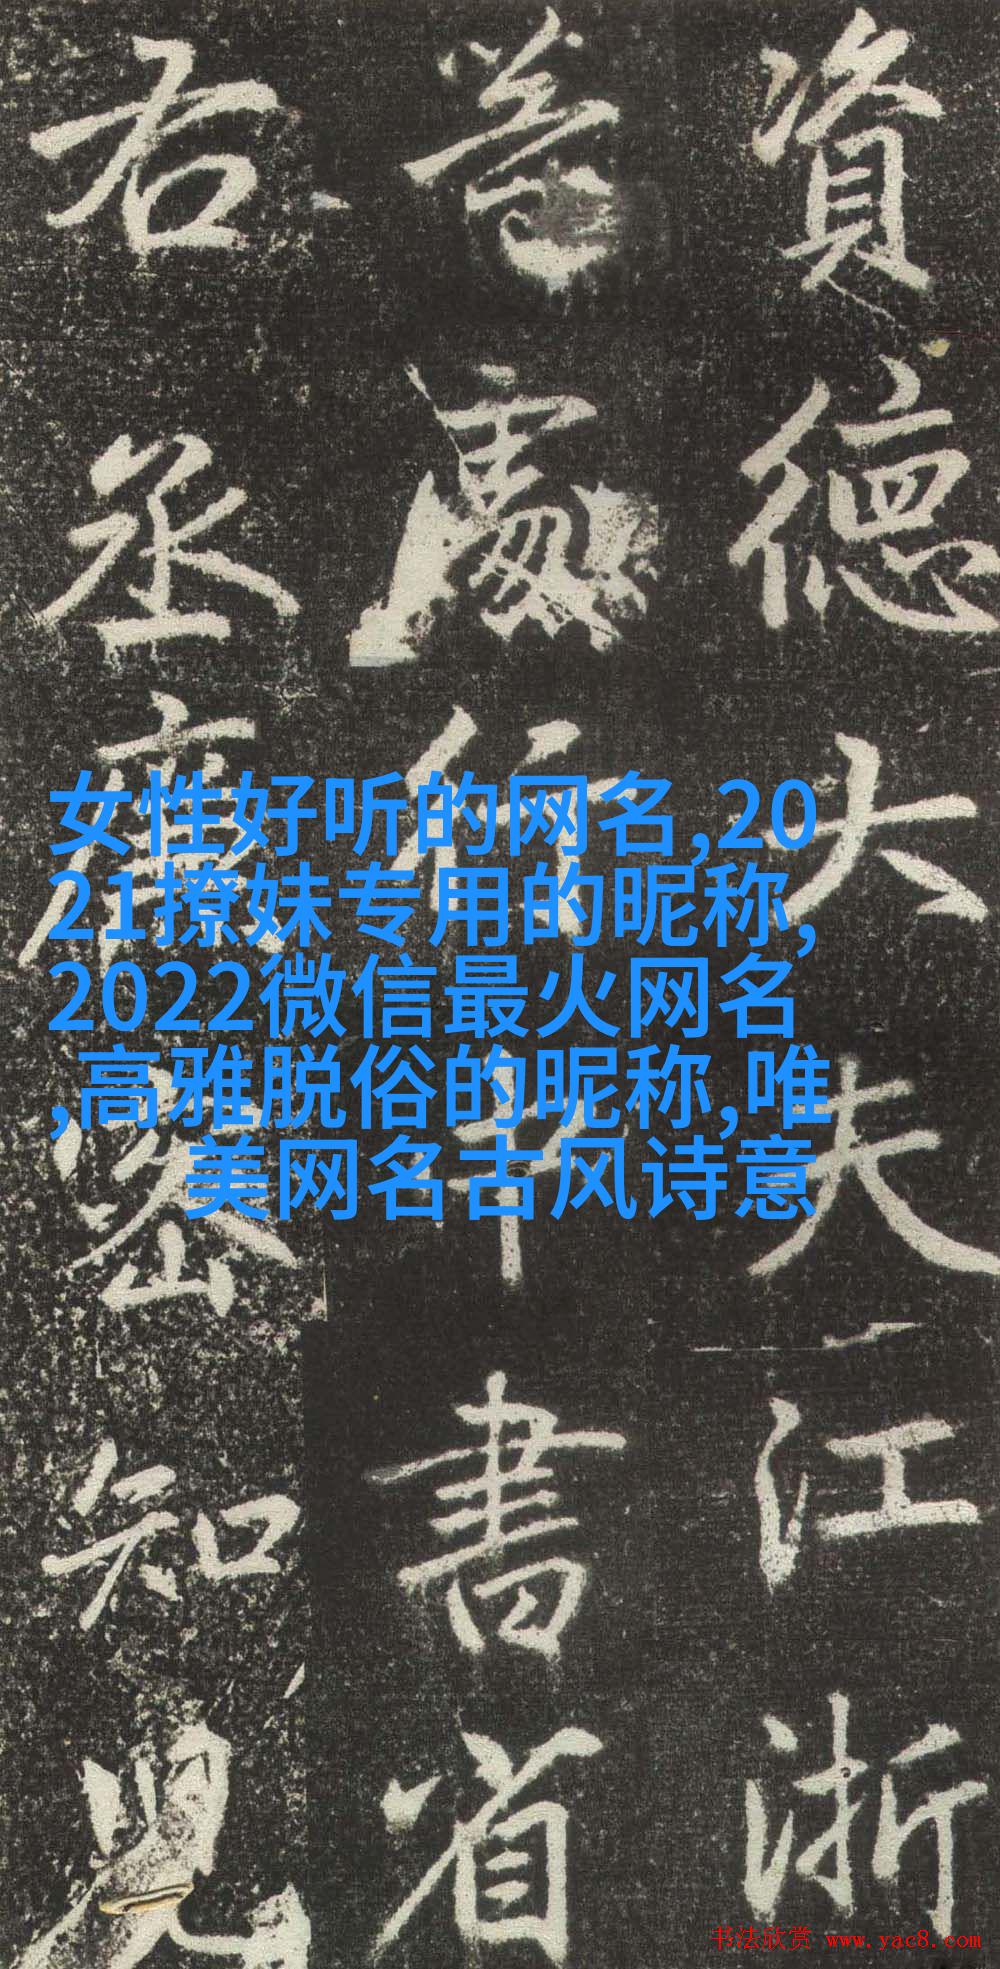 資德大夫江浙
等處行中書省
右丞
知
女性好听的网名,20
21撩妹专用的昵称,
2022微信最火网名
,高雅脱俗的昵称,唯
美网名古风诗意
书法欣赏 www.yac8.com